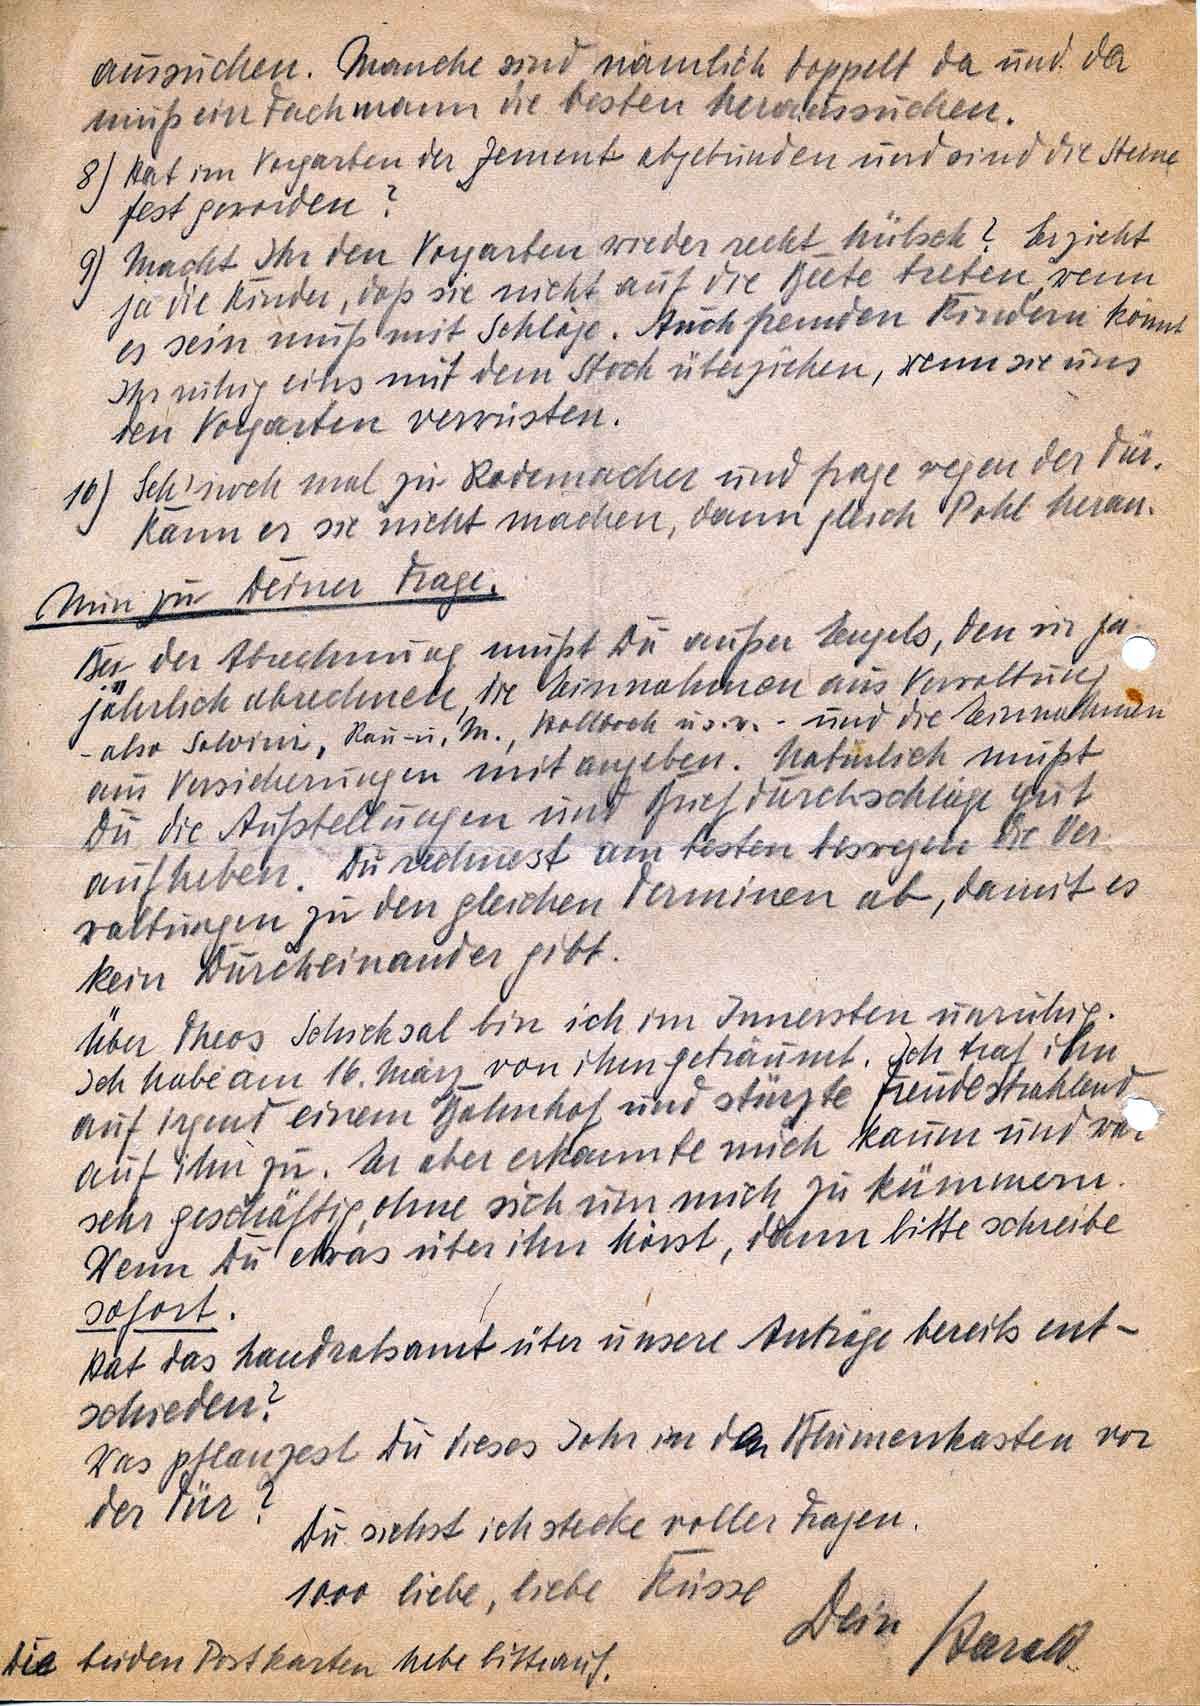 aussuchen. Manche sind nämlich doppelt da und da
muß ein Fachmann die besten heraussuchen.
8) Hat im Vorgarten der Zement abgebunden und sind die Steine
fest geworden?
9) Macht Ihr den Vorgarten wieder recht hübsch? Erzieht
ja die Kinder, daß sie nicht auf die Beete treten, wenn
es sein muß mit Schläge. Auch fremden Kindern könnt
Ihr ruhig eins mit dem Stock überziehen, wenn sie uns
den Vorgarten verwüsten.
10) Geh' mal zu Rademacher und frage wegen der Tür.
Kann er sie nicht machen, dann gleich Pohl heran.
Nun zu Deiner Frage.
Bei der Abrechnung mußt Du außer Engels, den wir ja
jährlich abrechnen, die Einnahmen aus Verwaltung
- also u.s.w. - und die Einnahmen
aus Versicherungen mit angeben. Natürlich mußt
Du die Aufstellungen und Briefdurchschläge gut
aufheben. Du rechnest am besten deswegen die Ver-
waltungen zu den gleichen Terminen ab, damit es
kein Durcheinander gibt.
Über Theos Schicksal bin ich im Innersten unruhig.
Ich habe am 16. März von ihm geträumt. Ich traf ihn
auf irgend einem Bahnhof und stürzte freudestrahlend
auf ihn zu. Er aber erkannte mich kaum und war
sehr geschäftig, ohne sich um mich zu kümmern.
Wenn Du etwas über ihn hörst, dann bitte schreibe
sofort.
Hat das Landratsamt über unsere Anträge bereits ent-
schieden?
Was pflanzest Du dieses Jahr in den Blumenkasten vor
der Tür?
Du siehst ich stecke voller Fragen.
1000 liebe, liebe Küsse
Dein Harald
Die beiden Postkarten hebe bitte auf.